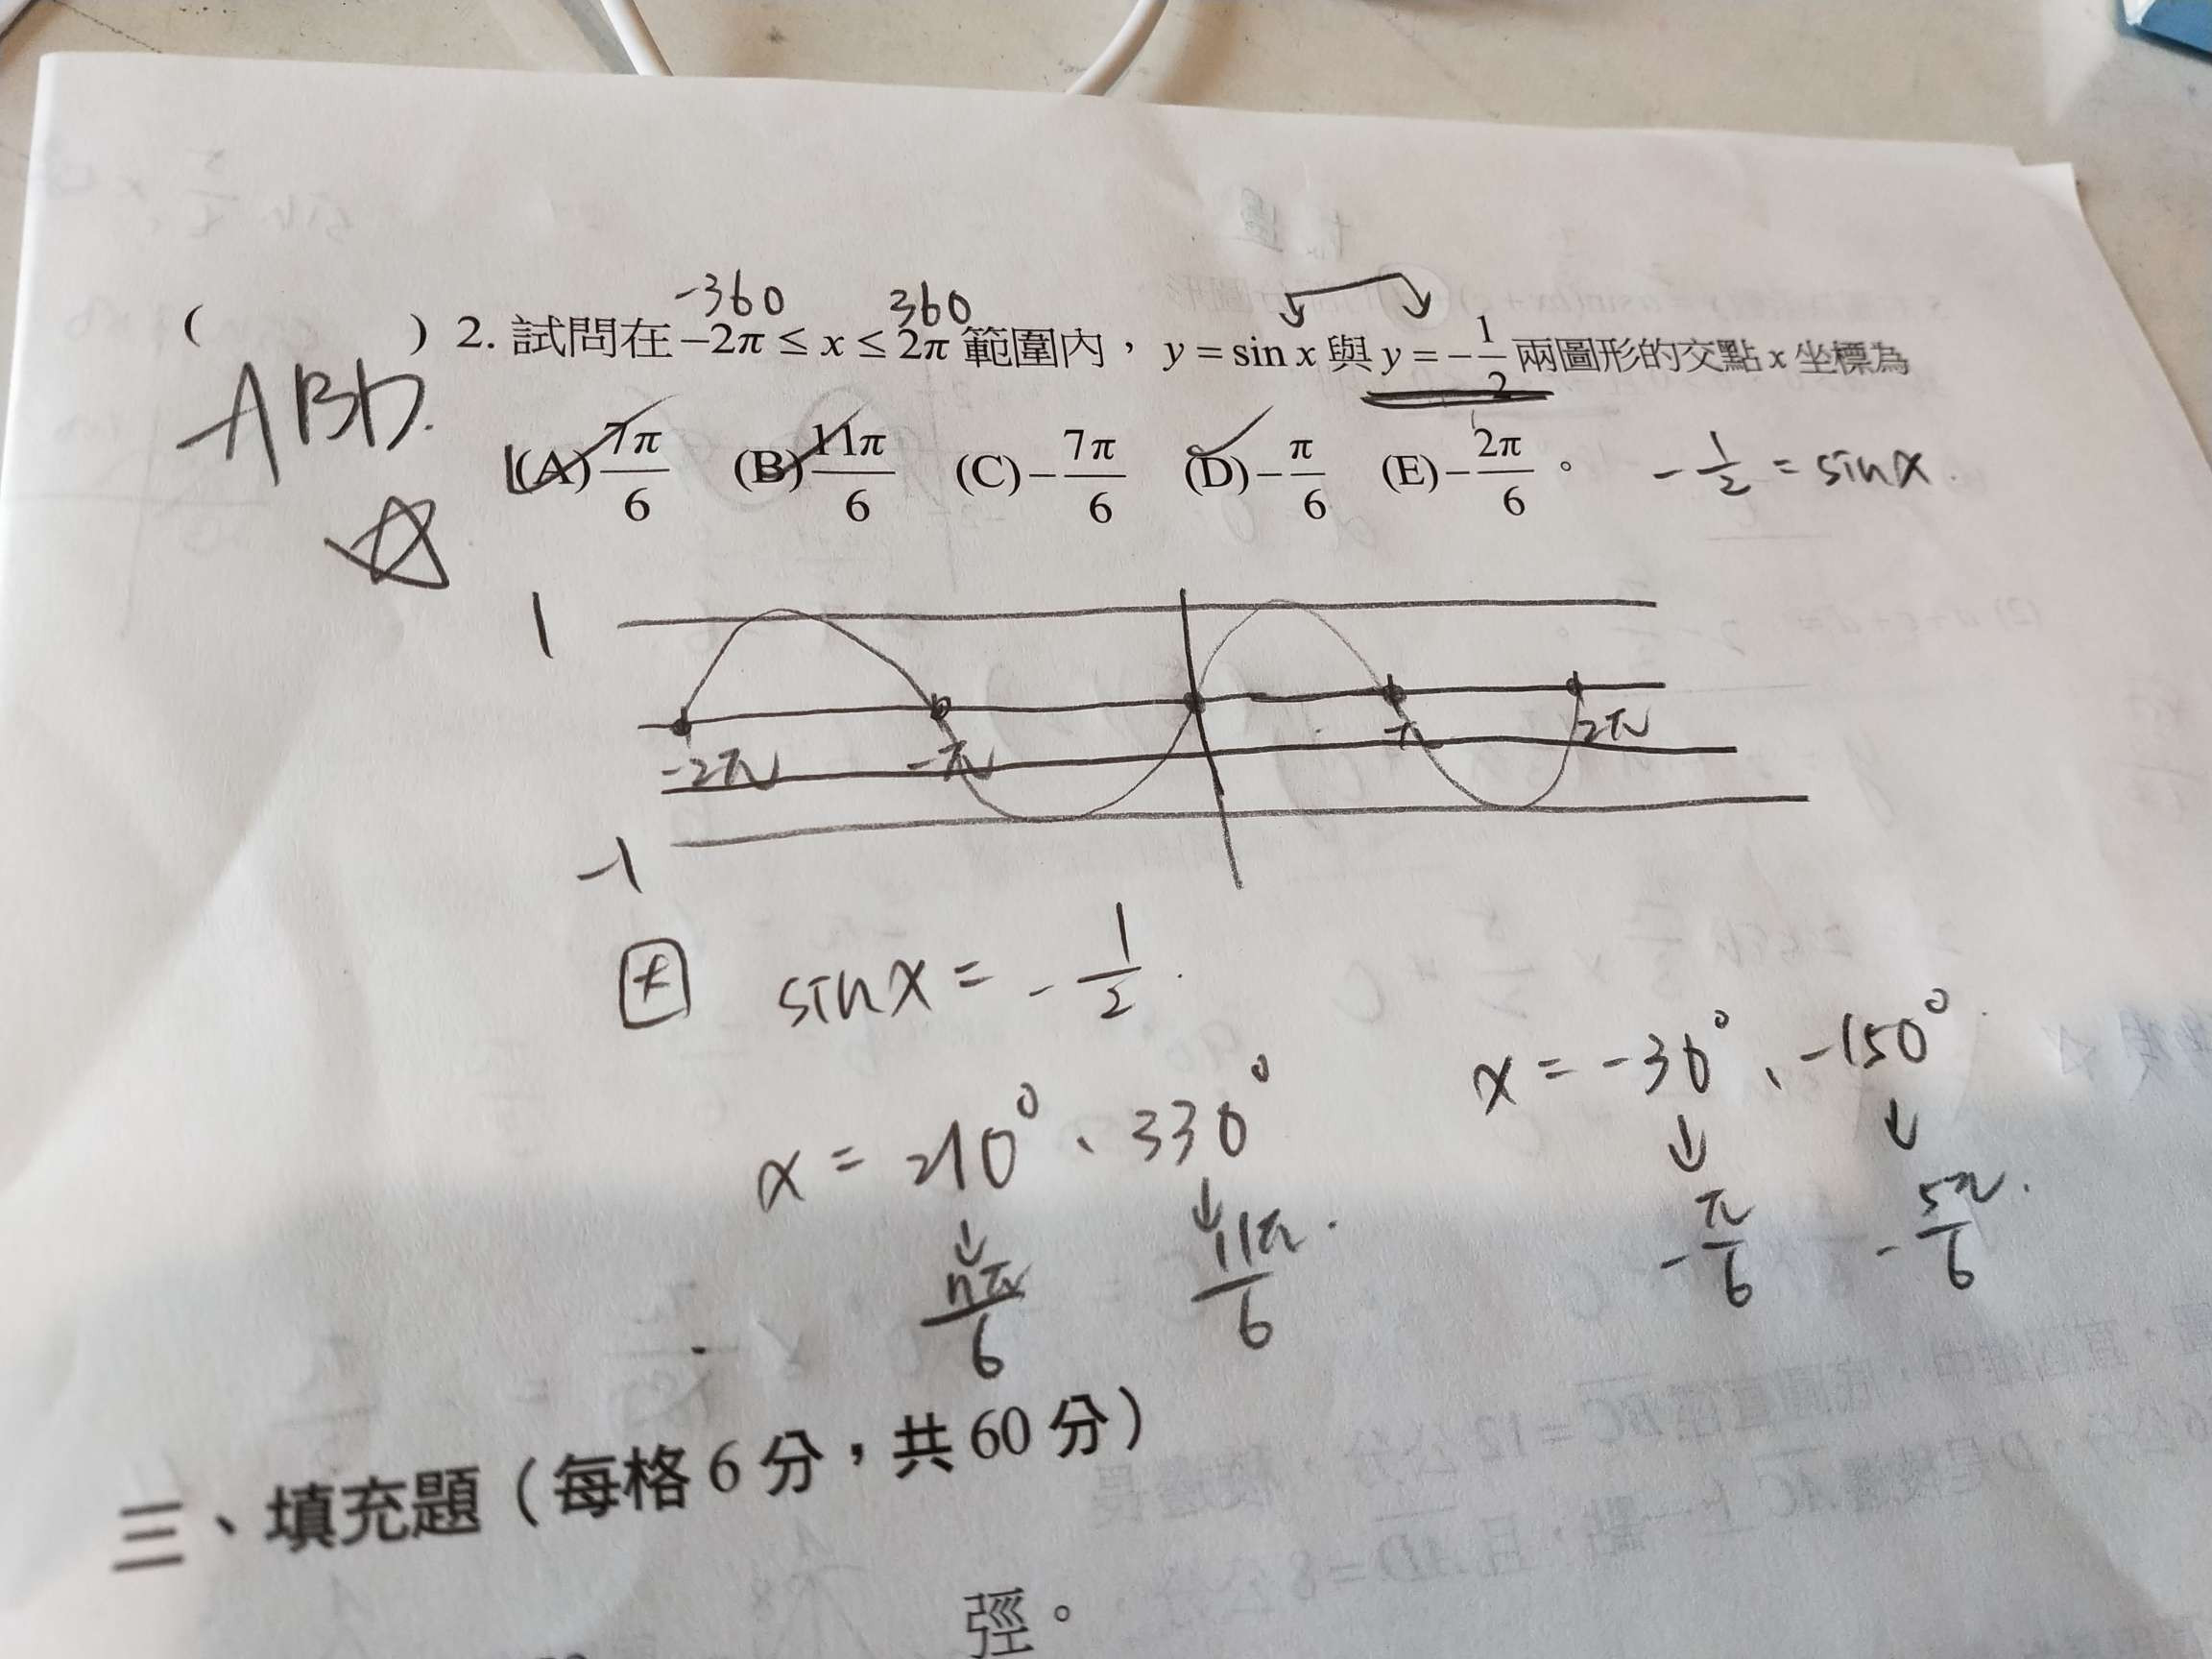 -360 360
( ) 2. 試問在 −2π ≤ x ≤ 2π 範圍內，y = sin x 與 y = −1/2 兩圖形的交點 x 坐標為
ABD.
(A) 7π/6 (B) 11π/6 (C) −7π/6 (D) −π/6 (E) −2π/6 。 -1/2 = sinx.
1
-2π -π π 2π
-1
sinx = -1/2.
x = 210°、330° x = -30°、-150°
7π/6 11π/6. -π/6 -5π/6.
三、填充題（每格 6 分，共 60 分）
徑。